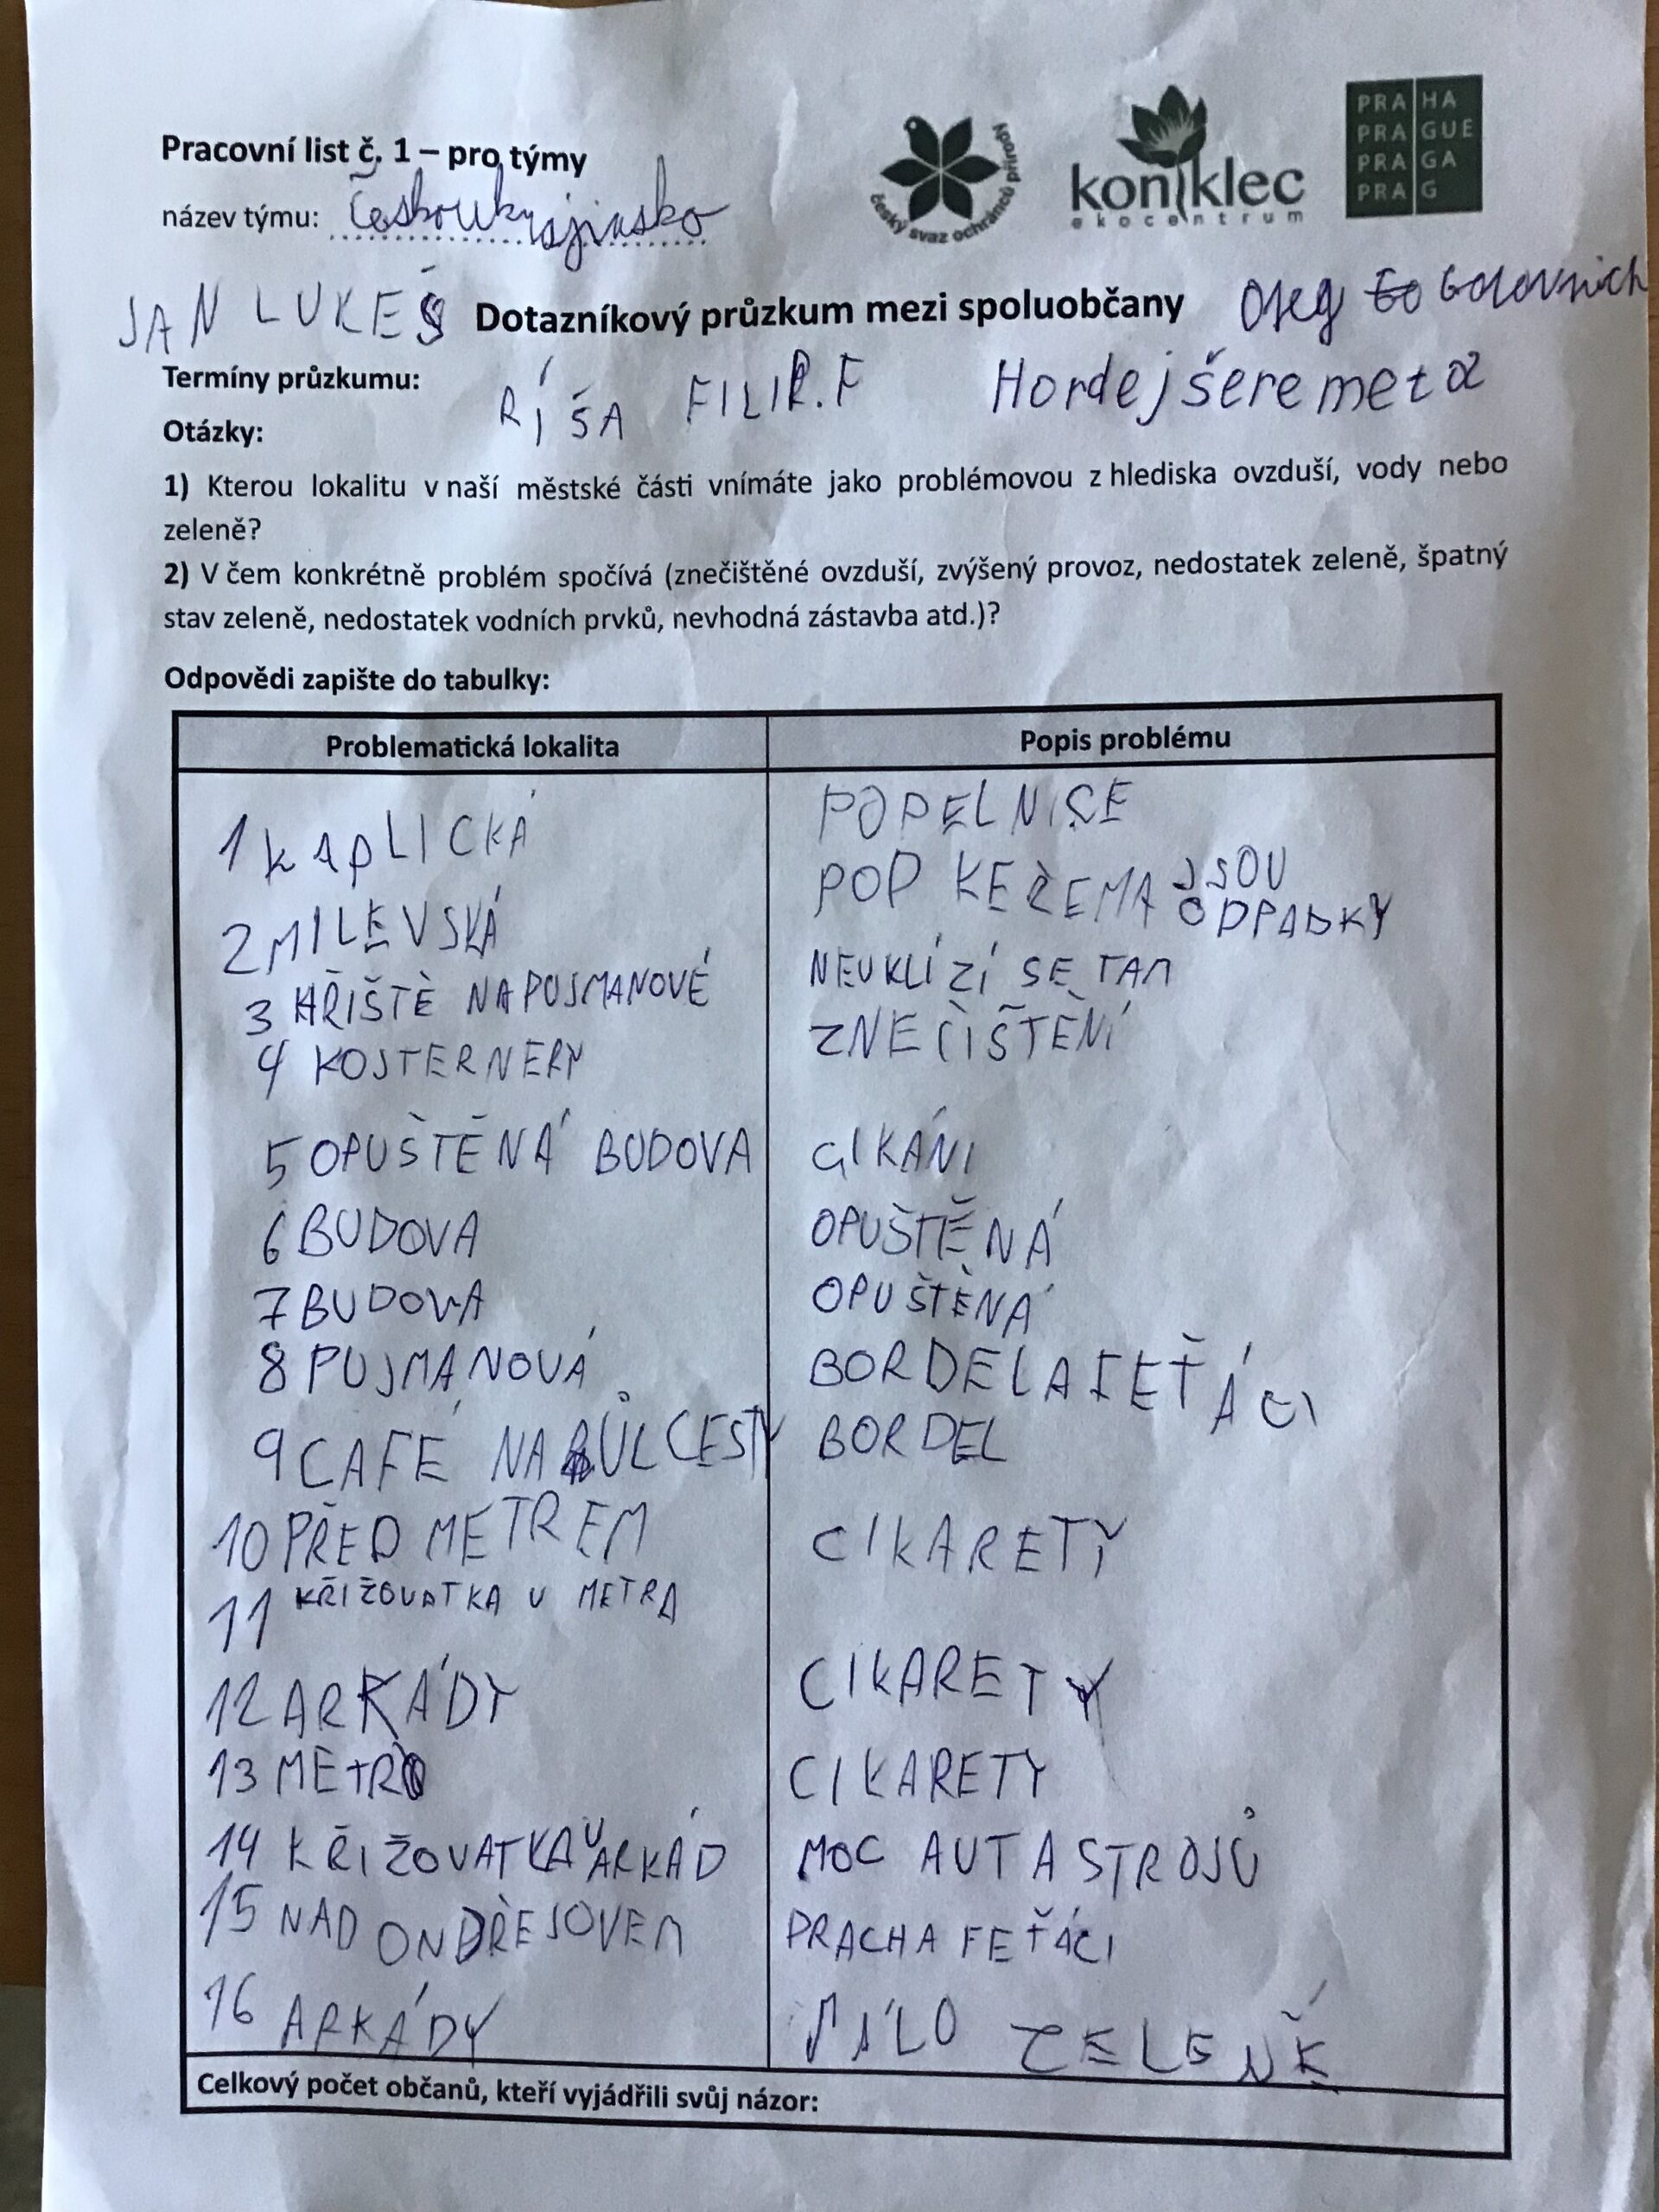 Pracovní list č. 1 – pro týmy
název týmu: Českoukrajinsko
český svaz ochránců přírody
koniklec
ekocentrum
PRA HA
PRA GUE
PRA GA
PRA G
JAN LUKEŠ Dotazníkový průzkum mezi spoluobčany Oleg
Termíny průzkumu: ŘÍŠA FILIP.F Hordej šeremeta
Otázky:
1) Kterou lokalitu v naší městské části vnímáte jako problémovou z hlediska ovzduší, vody nebo
zeleně?
2) V čem konkrétně problém spočívá (znečištěné ovzduší, zvýšený provoz, nedostatek zeleně, špatný
stav zeleně, nedostatek vodních prvků, nevhodná zástavba atd.)?
Odpovědi zapište do tabulky:
Problematická lokalita Popis problému
1 KAPLICKÁ POPELNICE
2 MILEVSKÁ POD KEŘEMA JSOU ODPADKY
3 HŘIŠTĚ NA PUJMANOVÉ NEUKLÍZÍ SE TAM
4 KOSTERNERY ZNEČIŠTĚNÍ
5 OPUŠTĚNÁ BUDOVA CIKÁNI
6 BUDOVA OPUŠTĚNÁ
7 BUDOVA OPUŠTĚNÁ
8 PUJMANOVÁ BORDEL A FEŤÁCI
9 CAFÉ NA PŮL CESTY BORDEL
10 PŘED METREM CIKARETY
11 KŘIŽOVATKA U METRA
12 ARKÁDY CIKARETY
13 METRO CIKARETY
14 KŘIŽOVATKA U ARKÁD MOC AUT A STROJŮ
15 NAD ONDŘEJOVEM PRACH A FEŤÁCI
16 ARKÁDY MÁLO ZELENĚ
Celkový počet občanů, kteří vyjádřili svůj názor: